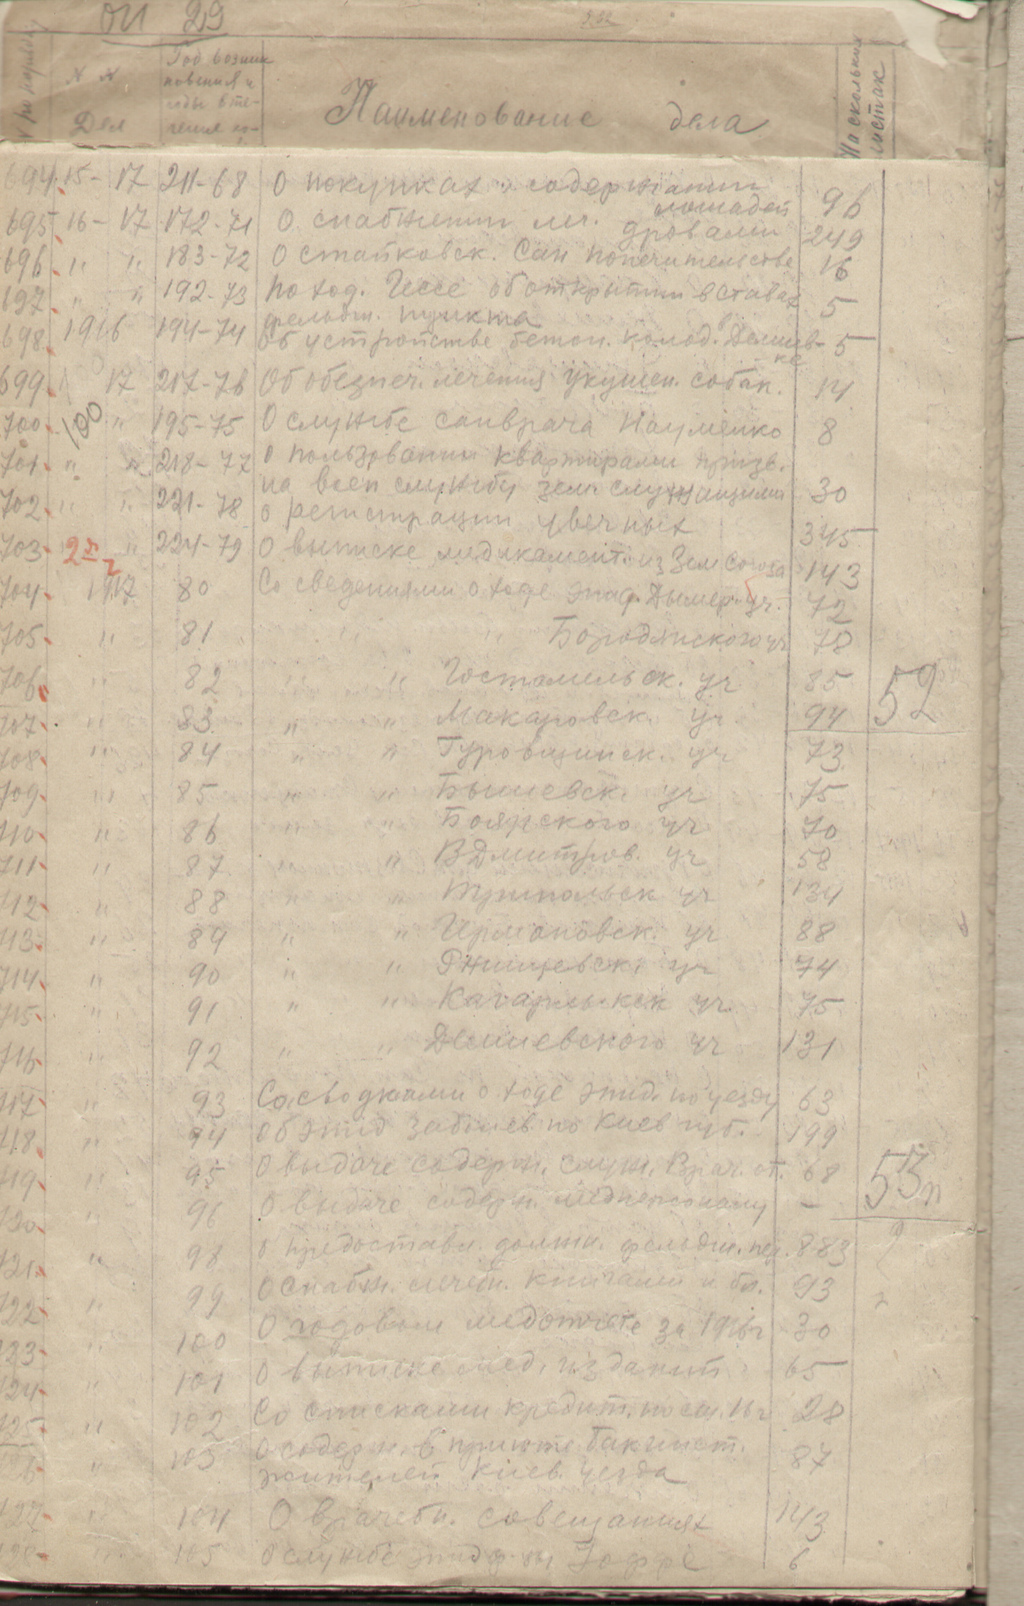 ОП 29
№ по порядку
№ №
Дел
Год возник
новения и
годы в те-
чения ко-
Наименование дела
На скольких
листах
694 15-17 211-68 О покупках и содержании лошадей 96
695 16-17 172-71 О снабжении ле. дровами 249
696 " " 183-72 О стайковск. Сан попечительстве 16
697 " " 192-73 По ход. Гессе об открытии в Ставах
фельдш. пункта 5
698 1916 194-74 Об устройстве бетон. колод. Дешев-
ке 5
699 17 217-76 Об обезпеч. лечения укушен. собак. 14
700 100 " 195-75 О службе санврача Науменко 8
701 " " 218-77 О пользовании квартирами призв.
на воен службу зем. служащими 30
702 " " 221-78 О регистрации увечных 345
703 " 224-79 О выписке медикамент. из Зем Союза 143
704 1917 80 Со сведениями о ходе эпид. Дымер. уч. 72
705 " 81 " " Бородянского уч 78
706 " 82 " " Гостомельск. уч 85
52
707 " 83 " " Макаровск. уч 94
708 " 84 " " Гуровщинск. уч 73
709 " 85 " " Бышевск. уч 75
710 " 86 " " Боярского уч 70
711 " 87 " " В Дмитров. уч 58
712 " 88 " " уч 134
713 " 89 " " Германовск. уч 88
714 " 90 " " Ржищевск. уч 74
715 " 91 " " Кагарлыкск уч. 75
716 " 92 " " Дешевского уч 131
717 " 93 Со сводками о ходе эпид. по уезду 63
718 " 94 Об эпид заболев по Киев губ. 199
719 " 95 О выдаче содерж. служ. Врач. от. 68
53
720 " 96 О выдаче содерж. медперсоналу –
721 " 98 О предоставл. должн. фельдш. пер. 883
722 " 99 О снабж. лечебн. книгами и бл. 93
723 " 100 О годовом медотчете за 1916 г 30
724 " 101 О выписке мед. издании 65
725 " 102 Со списками кредит. по см. 16 г 28
726 " 103 О содерж. в приюте
жителей Киев. уезда 87
727 " 104 О врачебн. совещаниях 143
728 " 105 О службе эпид. вр. Иоффе 6